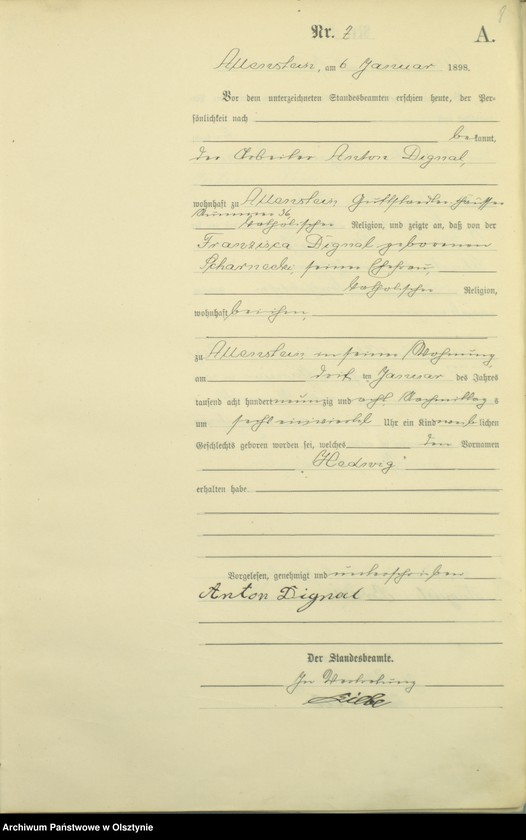 Nr. 7
A.
Allenstein, am 6 Januar 1898.
Vor dem unterzeichneten Standesbeamten erschien heute, der Per-
sönlichkeit nach
bekannt,
der Arbeiter Anton Dignal,
wohnhaft zu Allenstein Guttstaedter Chaussee
Nummer 36,
katholischer Religion, und zeigte an, daß von der
Franzisca Dignal geborenen
Scharnecki, seiner Ehefrau,
katholischer Religion,
wohnhaft bei ihm,
zu Allenstein in seiner Wohnung
am ten Januar des Jahres
tausend acht hundert neunzig und acht Nachmittags
um sechs einviertel Uhr ein Kind weiblichen
Geschlechts geboren worden sei, welches den Vornamen
"Hedwig"
erhalten habe.
Vorgelesen, genehmigt und unterschrieben
Anton Dignal
Der Standesbeamte.
In Vertretung
Archiwum Państwowe w Olsztynie